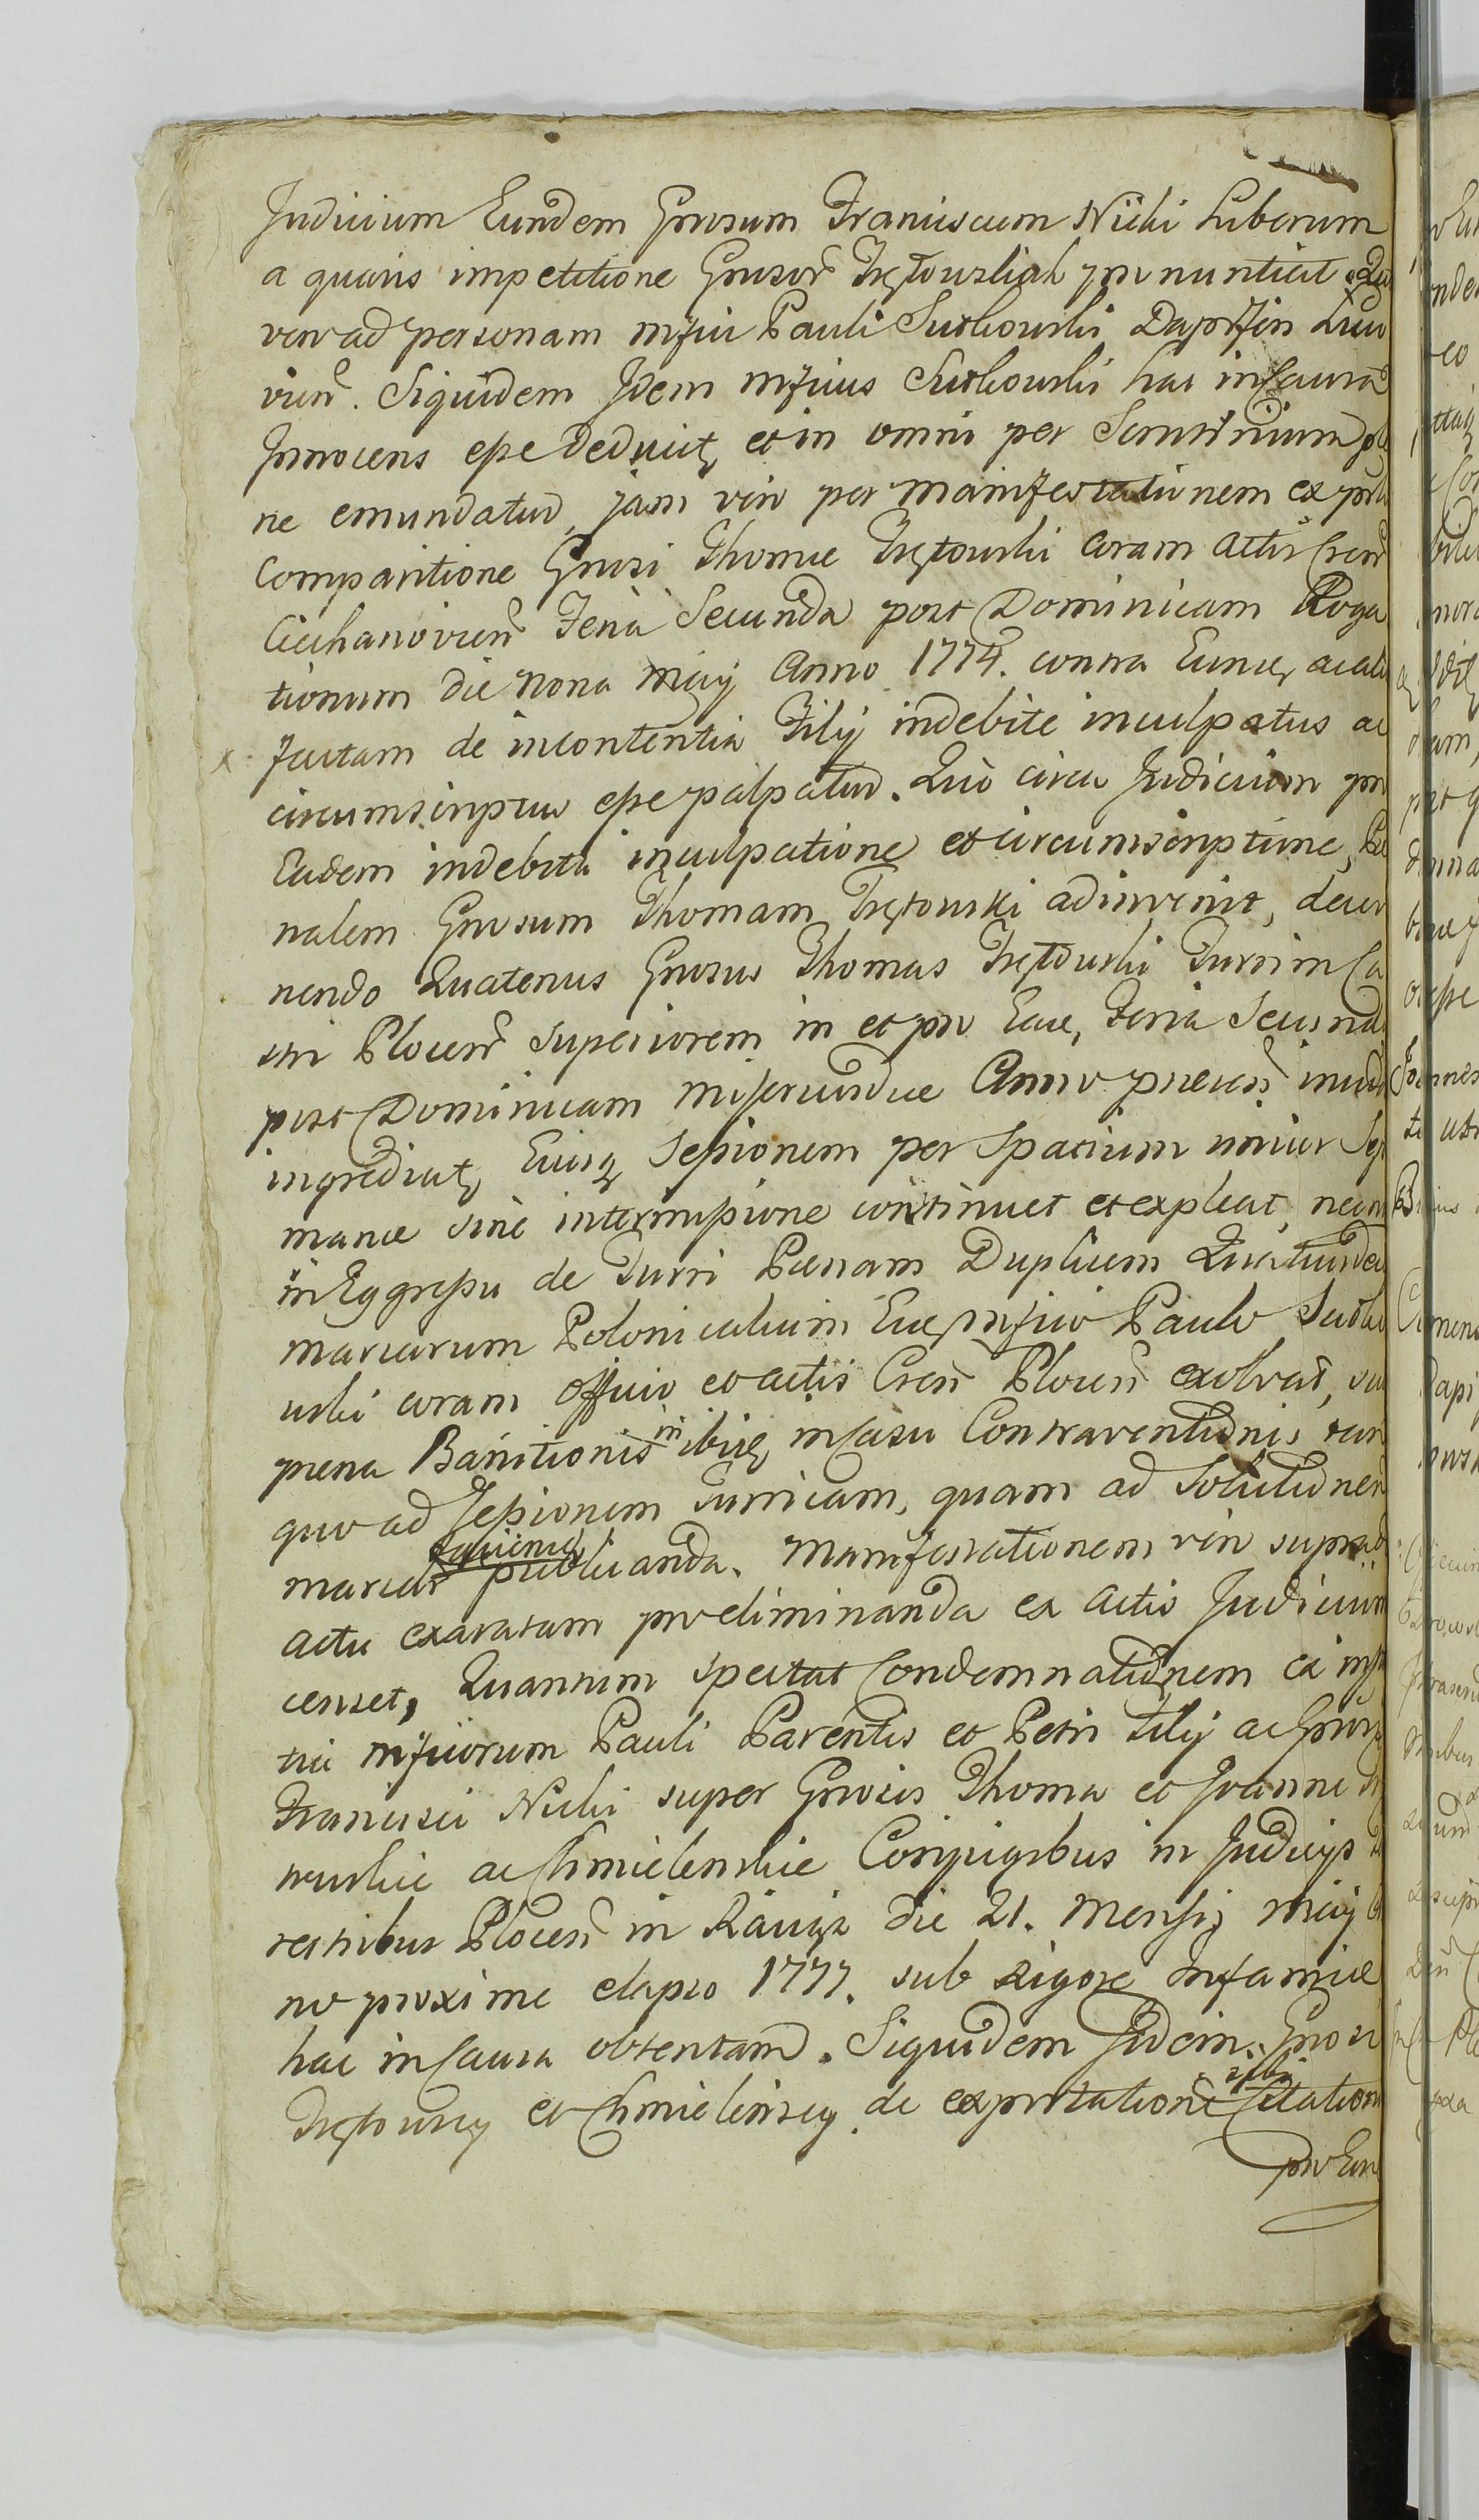 Judicium Eundem Gnrosum Franciscum Nicki Liberum
a quavis impetitione Gnrosor Trętowskich pronuntiat. Quo
vero ad personam Mfici Pauli Sutkowski Dapiferi
vien. Siquidem Idem Mficus Sutkowski hac in Causa
Innocens esse deducitq et in omni per Scrutinium ple
ne emundatur, jam vero per manifestationem ex prli
Comparitione Gnrosi Thomae Trętowski coram Actis Cren
Ciechanovien Feria Secunda post Dominicam Roga
tionum die Nona May Anno 1774. contra Eunq
factam de incontentia Filij indebite inculpatus ac
circumscriptus esse palpatur. Quo circa Judicium pro
Eadem indebita inculpatione et circumscriptione, Poe
nalem Gnrosum Thomam Trętowski adinvenit, decer
nendo Quatenus Gnrosus Thomas Trętowski Turrim Ca
stri Plocen superiorem in et pro Eae, Feria Secunda
post Dominicam Misericordiae Anno praesen
ingrediatq, Eiusq Sessionem per Spatium unius Sep
manae sine interruptione continuet et expleat, necnon
in Eggressu de Turri Poenam Duplicem Quatuordecim
marcarum Polonicalium Eiq Mfico Paulo Sutko
wski coram Officio et Actis Cren Plocen exolvat, sub
paena Banitionis in ibiq in casu Contraventionis tam
quo ad Sessionem Turricam, quam ad Solutionem
marcar publicanda. Manifestationem vero
actu exaratam praeliminanda ex Actis Judicium
censet, Quantum spectat Condemnationem ex
tia Mficorum Pauli Parentis et Petri Filij ac Gnrosi
Francisci Nicki super Gnrosis Thoma et Joanne
towskie ac Chmielenskie Conjugibus in Judicijs
restribus Plocen in Raciąż die 21. Mensis May
no proxime elapso 1777. sub Rigore Infamiae
hac in Causa obtentam. Siquidem Iidem Gnrosi
Trętowscy et Chmielinscy de exportatione sibi Citationis
pro Eun